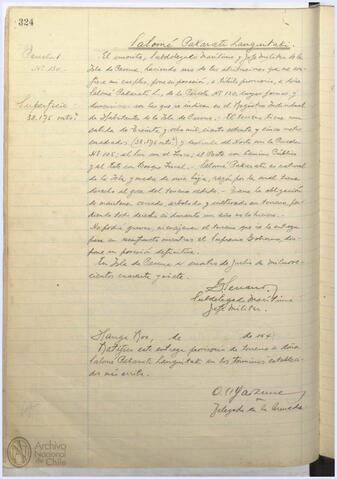 324
Salomé Pakarati Languitopa:
Parcela
N° 130.
El suscrito, Subdelegado Marítimo y Jefe Militar de la
Isla de Pascua, haciendo uso de las atribuciones que me con-
fiere mi empleo, pone en posesión, a título provisorio, a doña
Salomé Pakarati L., de la Parcela N° 130, cuya forma y
Superficie
38.175 mts²
dimensiones son las que se indican en el Registro Individual
de Habitantes de la Isla de Pascua. El terreno tiene una
cabida de treinta y ocho mil ciento setenta y cinco metros
cuadrados (38.175 mts²) y deslinda al Norte con la Parcela
N° 105; al Sur, con el Fisco; al Oeste con Camino Público
y al Este con Fiscal. Salomé Pakarati es natural
de la Isla y madre de una hija, razón por la cual tiene
derecho al goce del terreno cedido. - Tiene la obligación
de mantener cercado, arbolado y cultivado su terreno, per-
diendo todo derecho si durante un año no lo hiciere.
No podrá gravar, ni enajenar el terreno que se le entrega
para su usufructo mientras el Supremo Gobierno, dis-
pone su posesión definitiva.
En Isla de Pascua a cuatro de Julio de mil nove-
cientos cuarenta y siete.
Subdelegado Marítimo
Jefe Militar.
Hanga Roa, de de 194
Ratifico esta entrega provisoria de terreno a doña
Salomé Pakarati Languitopa en los términos estableci-
dos más arriba.
Delegado de la Armada
Archivo
Nacional
de Chile